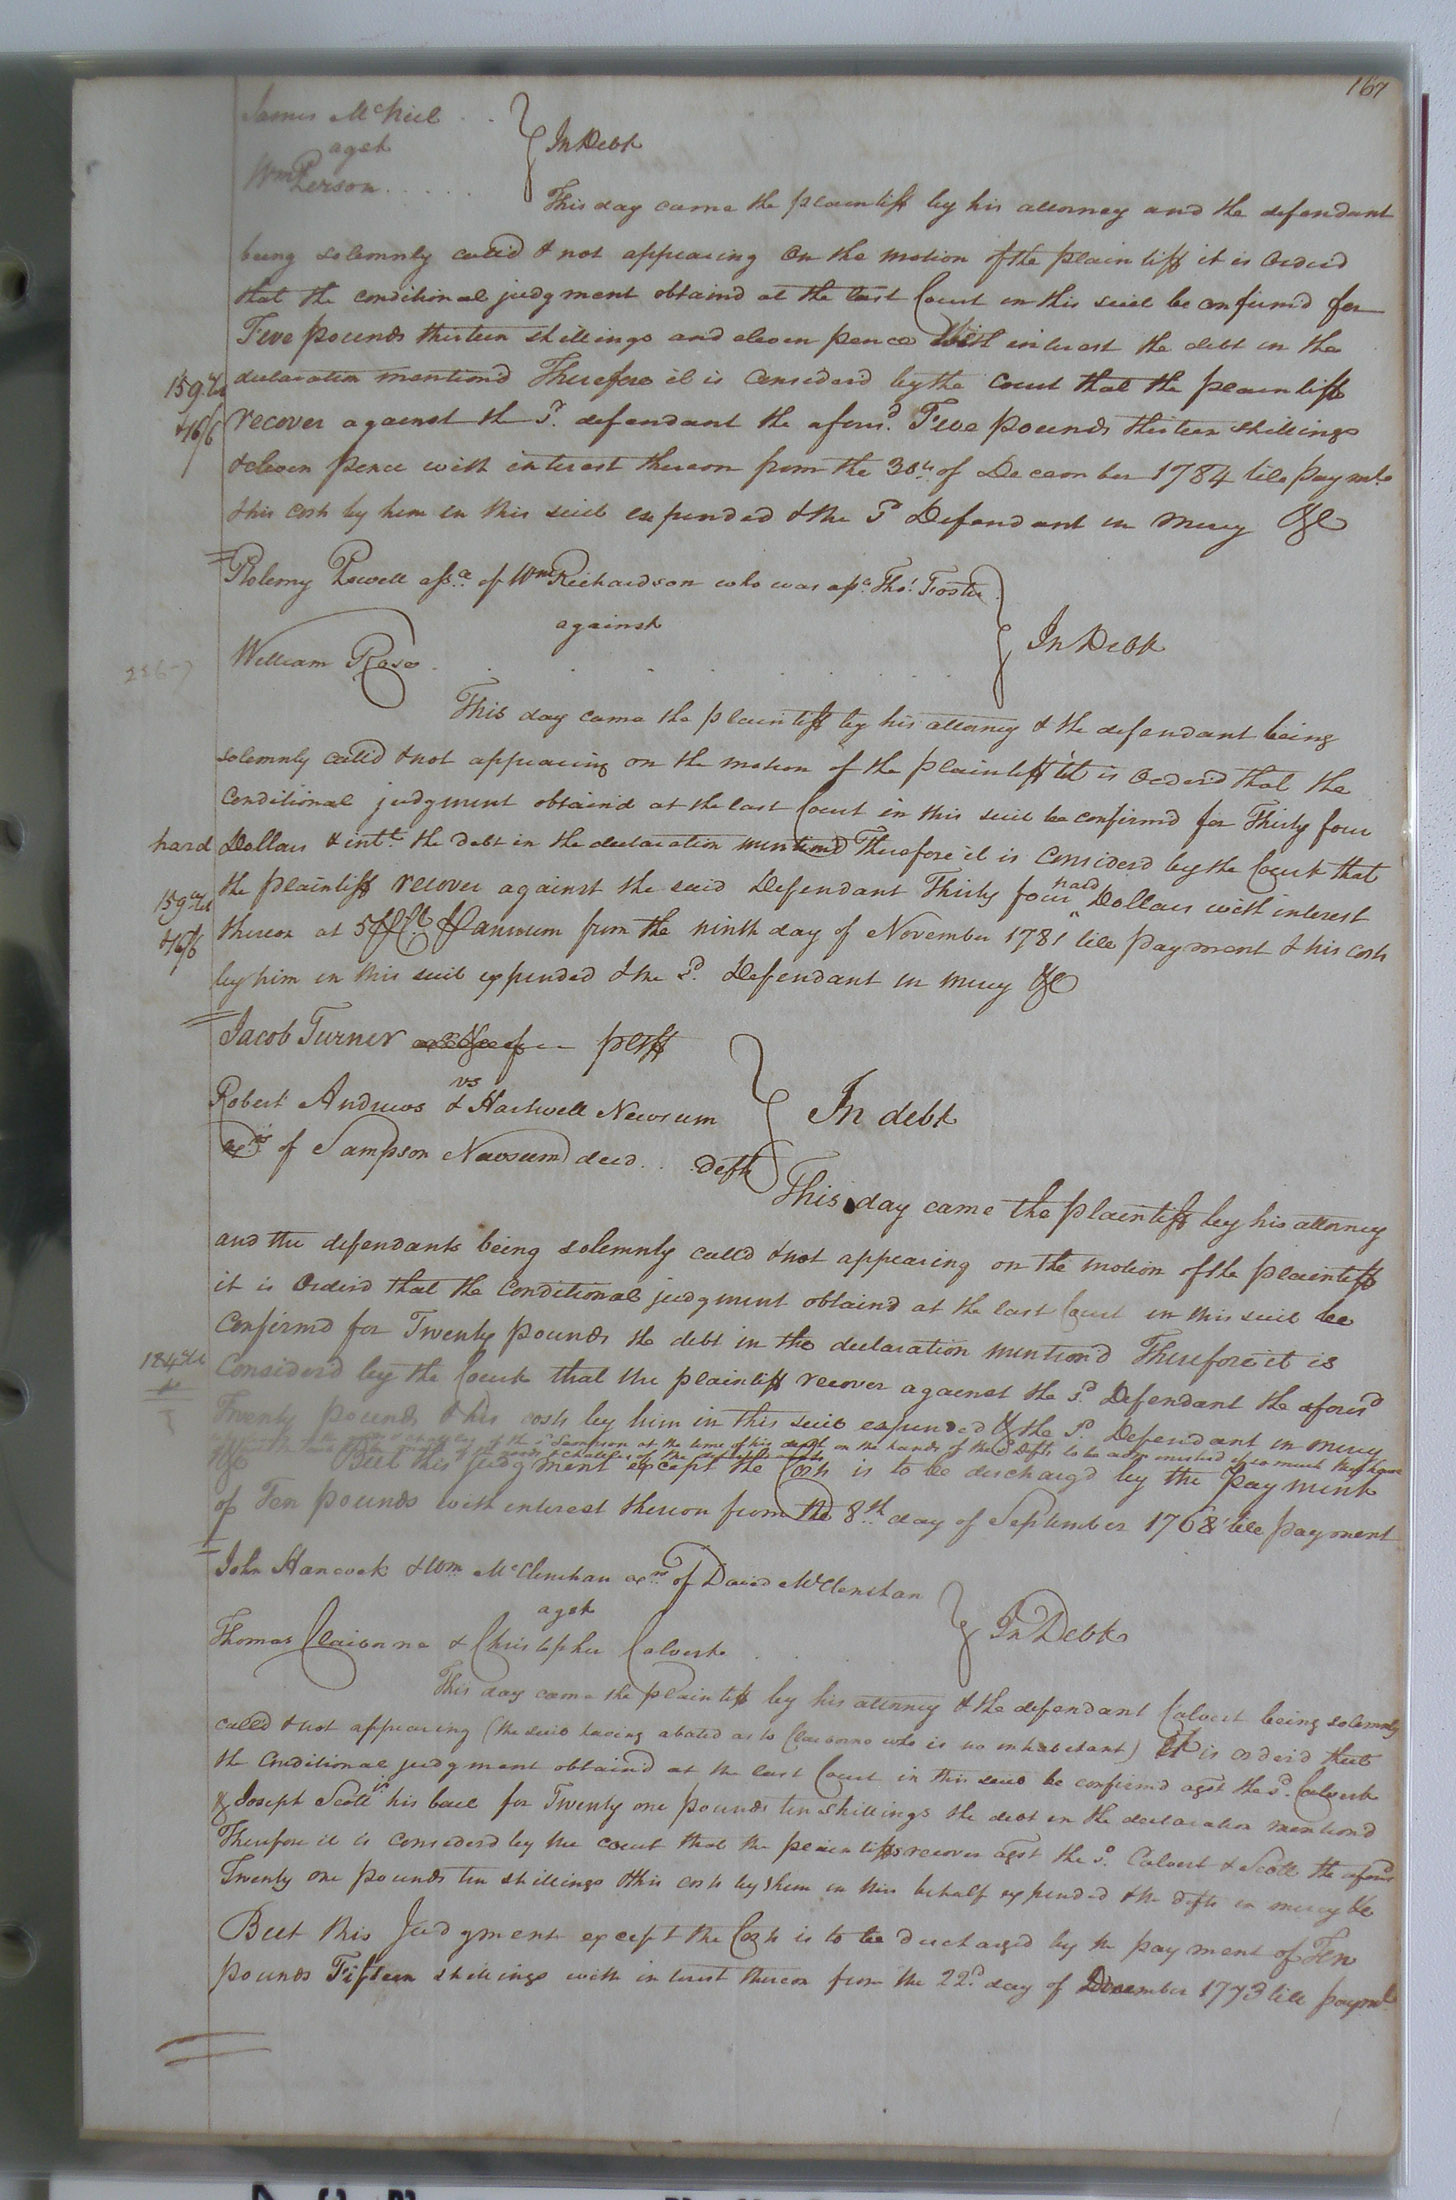 167
James McNeil
agst
Wm Person
In Debt
This day came the plaintiff by his attorney and the defendant
being solemnly calld & not appearing On the motion of the plaintiff it is Orderd
that the conditional judgment obtaind at the last Court in this suit be confirmd for
Five pounds thirteen shillings and eleven pence With interest the debt in the
declaration mentiond Therefore it is Considerd by the Court that the plaintiff
recover against the sd. defendant the aforsd. Five pounds thirteen shillings
& eleven pence with interest thereon from the 30th of December 1784 till paymt.
& his costs by him in this suit expended & the sd Defendant in mercy &c
159
&16/6
Ptolemy Powell assee. of Wm Richardson who was asse. Thos. Foster
against
William Rose
In Debt
This day came the plaintiff by his attorney & the defendant being
solemnly calld & not appearing on the motion of the plaintiff it is Orderd that the
Conditional judgment obtaind at the last Court in this suit be confirmd for Thirty four
hard
Dollars & intt. the debt in the declaration mentiond Therefore it is Considerd by the Court that
the plaintiff recover against the said Defendant Thirty four hard Dollars with interest
thereon at 5 annum from the ninth day of November 1781 till payment & his costs
by him in this suit expended & the sd. Defendant in mercy &c
159
&16/6
Jacob Turner pltff
vs
Robert Andrews & Hartwell Newsum
exrs of Sampson Newsum decd. defts
In debt
This day came the plaintiff by his attorney
and the defendants being solemnly calld & not appearing on the motion of the plaintiff
it is Orderd that the Conditional judgment obtaind at the last Court in this suit be
Confirmd for Twenty pounds the debt in the declaration mentiond Therefore it is
184
Considerd by the Court that the plaintiff recover against the sd Defendant the aforsd
Twenty pounds & his costs by him in this suit expended & the sd. Defendant in mercy
of the sd Sampson at the time of his death in the hands of the sd Defts to be administerd if so much they have
&c But this judgment except the Costs is to be dischargd by the payment
of Ten pounds with interest thereon from the 8th day of September 1768 till payment
John Hancock & Wm McClenchan exrs of David McClenchan
agst
Thomas Claiborne & Christopher Calvert
In Debt
This day came the plaintiff by his attorney & the defendant Calvert being solemnly
calld & not appearing (the suit having abated as to Claiborne who is no inhabitant) It is orderd that
the Conditional judgment obtaind at the last Court in this suit be confirmd agst the sd. Calvert
& Joseph Scott his bail for Twenty one pounds ten shillings the debt in the declaration mentiond
Therefore it is considerd by the court that the plaintiffs recover agst the sd. Calvert & Scott the aforsd
Twenty one pounds ten shillings & this costs by them in this behalf expended & the defts in mercy &c
But this Judgment except the Costs is to be dischargd by the payment of Ten
pounds Fifteen shillings with interest thereon from the 22d day of December 1773 till paymt